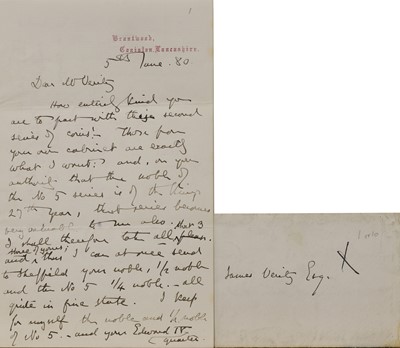 1
Brantwood,
Coniston, Lancashire.
5th June. 80
Dear Mr Verity
How entirely kind you
are to part with these second
series of coins! Those from
your own cabinet are exactly
what I want: and, on your
authority that the noble of
the No 5 series is of the King's
27th year, that series becomes
very valuable to me also. that 3
I shall therefore take all, please.
and thus I can at once send
to Sheffield your noble, 1/2 noble
and the No 5 1/4 noble. - all
quite in fine state. I keep
for myself the noble and 1/2 noble
of No 5. - and your Edward IV
quarter.
James Verity Esq.
X